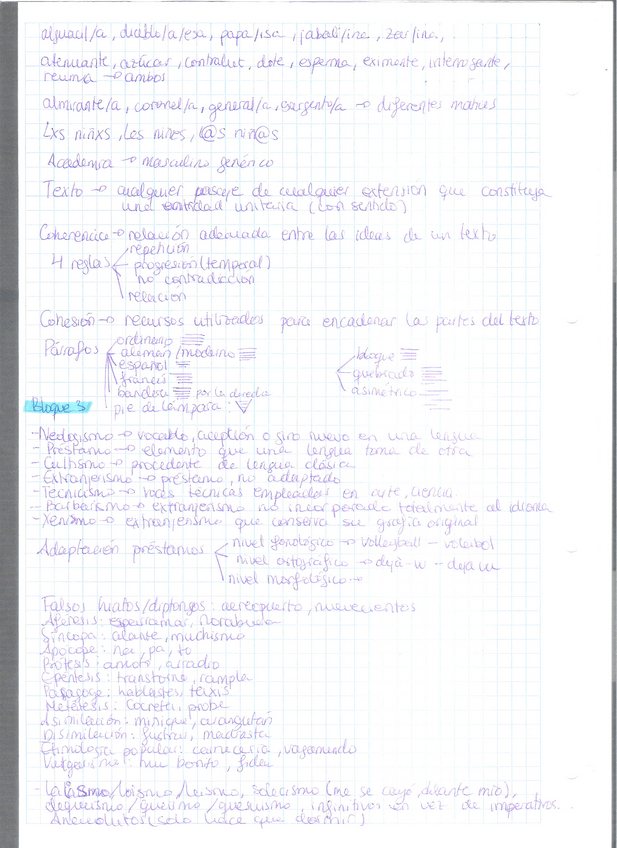 alguacil/a, diablo/a/esa, papa/isa, jabalí/ina, zar/ina,
atenuante, azúcar, contraluz, dote, esperma, eximente, interrogante,
reuma → ambos
almirante/a, coronel/a, general/a, sargento/a → diferentes matices
Lxs niñxs, Les niñes, L@s niñ@s
Academia → masculino genérico
Texto → cualquier pasaje de cualquier extensión que constituya
una entidad unitaria (con sentido)
Coherencia → relación adecuada entre las ideas de un texto
4 reglas
repetición
progresión (temporal)
no contradicción
relación
Cohesión → recursos utilizados para encadenar las partes del texto
Párrafos
ordinario
alemán/moderno
español
francés
bandera por la derecha
pie de lámpara:
bloque
quebrado
asimétrico
Bloque 3
- Neologismo → vocablo, acepción o giro nuevo en una lengua
- Préstamo → elemento que una lengua toma de otra
- Cultismo → procedente de lengua clásica
- Extranjerismo → préstamo, no adaptado
- Tecnicismo → voces técnicas empleadas en arte, ciencia.
- Barbarismo → extranjerismo no incorporado totalmente al idioma
- Xenismo → extranjerismo que conserva su grafía original
Adaptación préstamos
nivel fonológico → volleyball - voleibol
nivel ortográfico → dejà-vu - deja vu
nivel morfológico →
Falsos hiatos/diptongos: aereopuerto, nuevecientos
Aféresis: norabuena
Síncopa: alante, muchismo
Apócope: na, pa, to
Prótesis: amoto, arradio
Epéntesis: transtorno, rampla
Paragoge: hablastes,
Metátesis: cocreta, probe
Asimilación: minique,
Disimilación: madrasta
Etimología popular: carnecería, vagamundo
Vulgarismo: mu bonito,
- Laísmo/loísmo/leísmo, solecismo (me se cayó, delante mío),
dequeísmo/queísmo/ infinitivos en vez de imperativos.
Anacolutos (sólo hace que dormir)